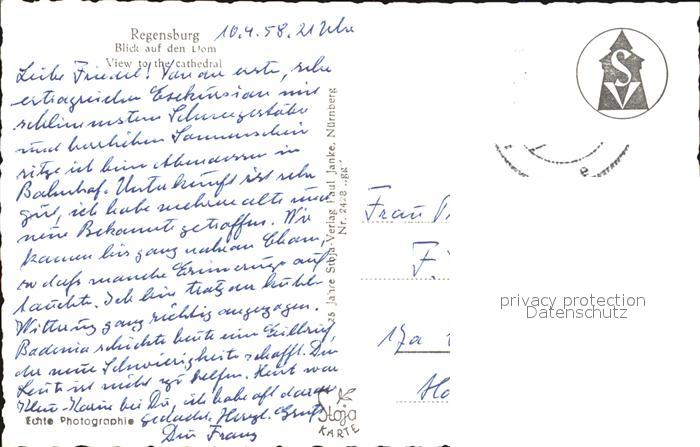 Regensburg 10.4.58. 21 Uhr
Blick auf den Dom
View to the cathedral
Liebe Friedel! Von der ersten, sehr
ertragreichen Exkursion mit
schlimmstem Schneegestöber
und herrlichem Sonnenschein
sitze ich beim Abendessen im
Bahnhof. Unterkunft ist sehr
gut, ich habe mehrere alte und
neue Bekannte getroffen. Wir
kamen bis ganz nahe an Cham,
so daß manche Erinnerung auf
tauchte. Ich bin trotz der kühlen
Witterung ganz richtig angezogen.
Badenia schickte heute einen Eilbrief,
der neue Schwierigkeiten schafft. Den
Leuten ist nicht zu helfen. Heut war
bei Dir, ich habe oft daran
gedacht. Herzl. Gruß
Dein Franz
Echte Photographie
25 Jahre Stoja-Verlag Paul Janke, Nürnberg
Nr. 2428
Stoja
KARTE
SV
Frau
F.
17a
privacy protection
Datenschutz